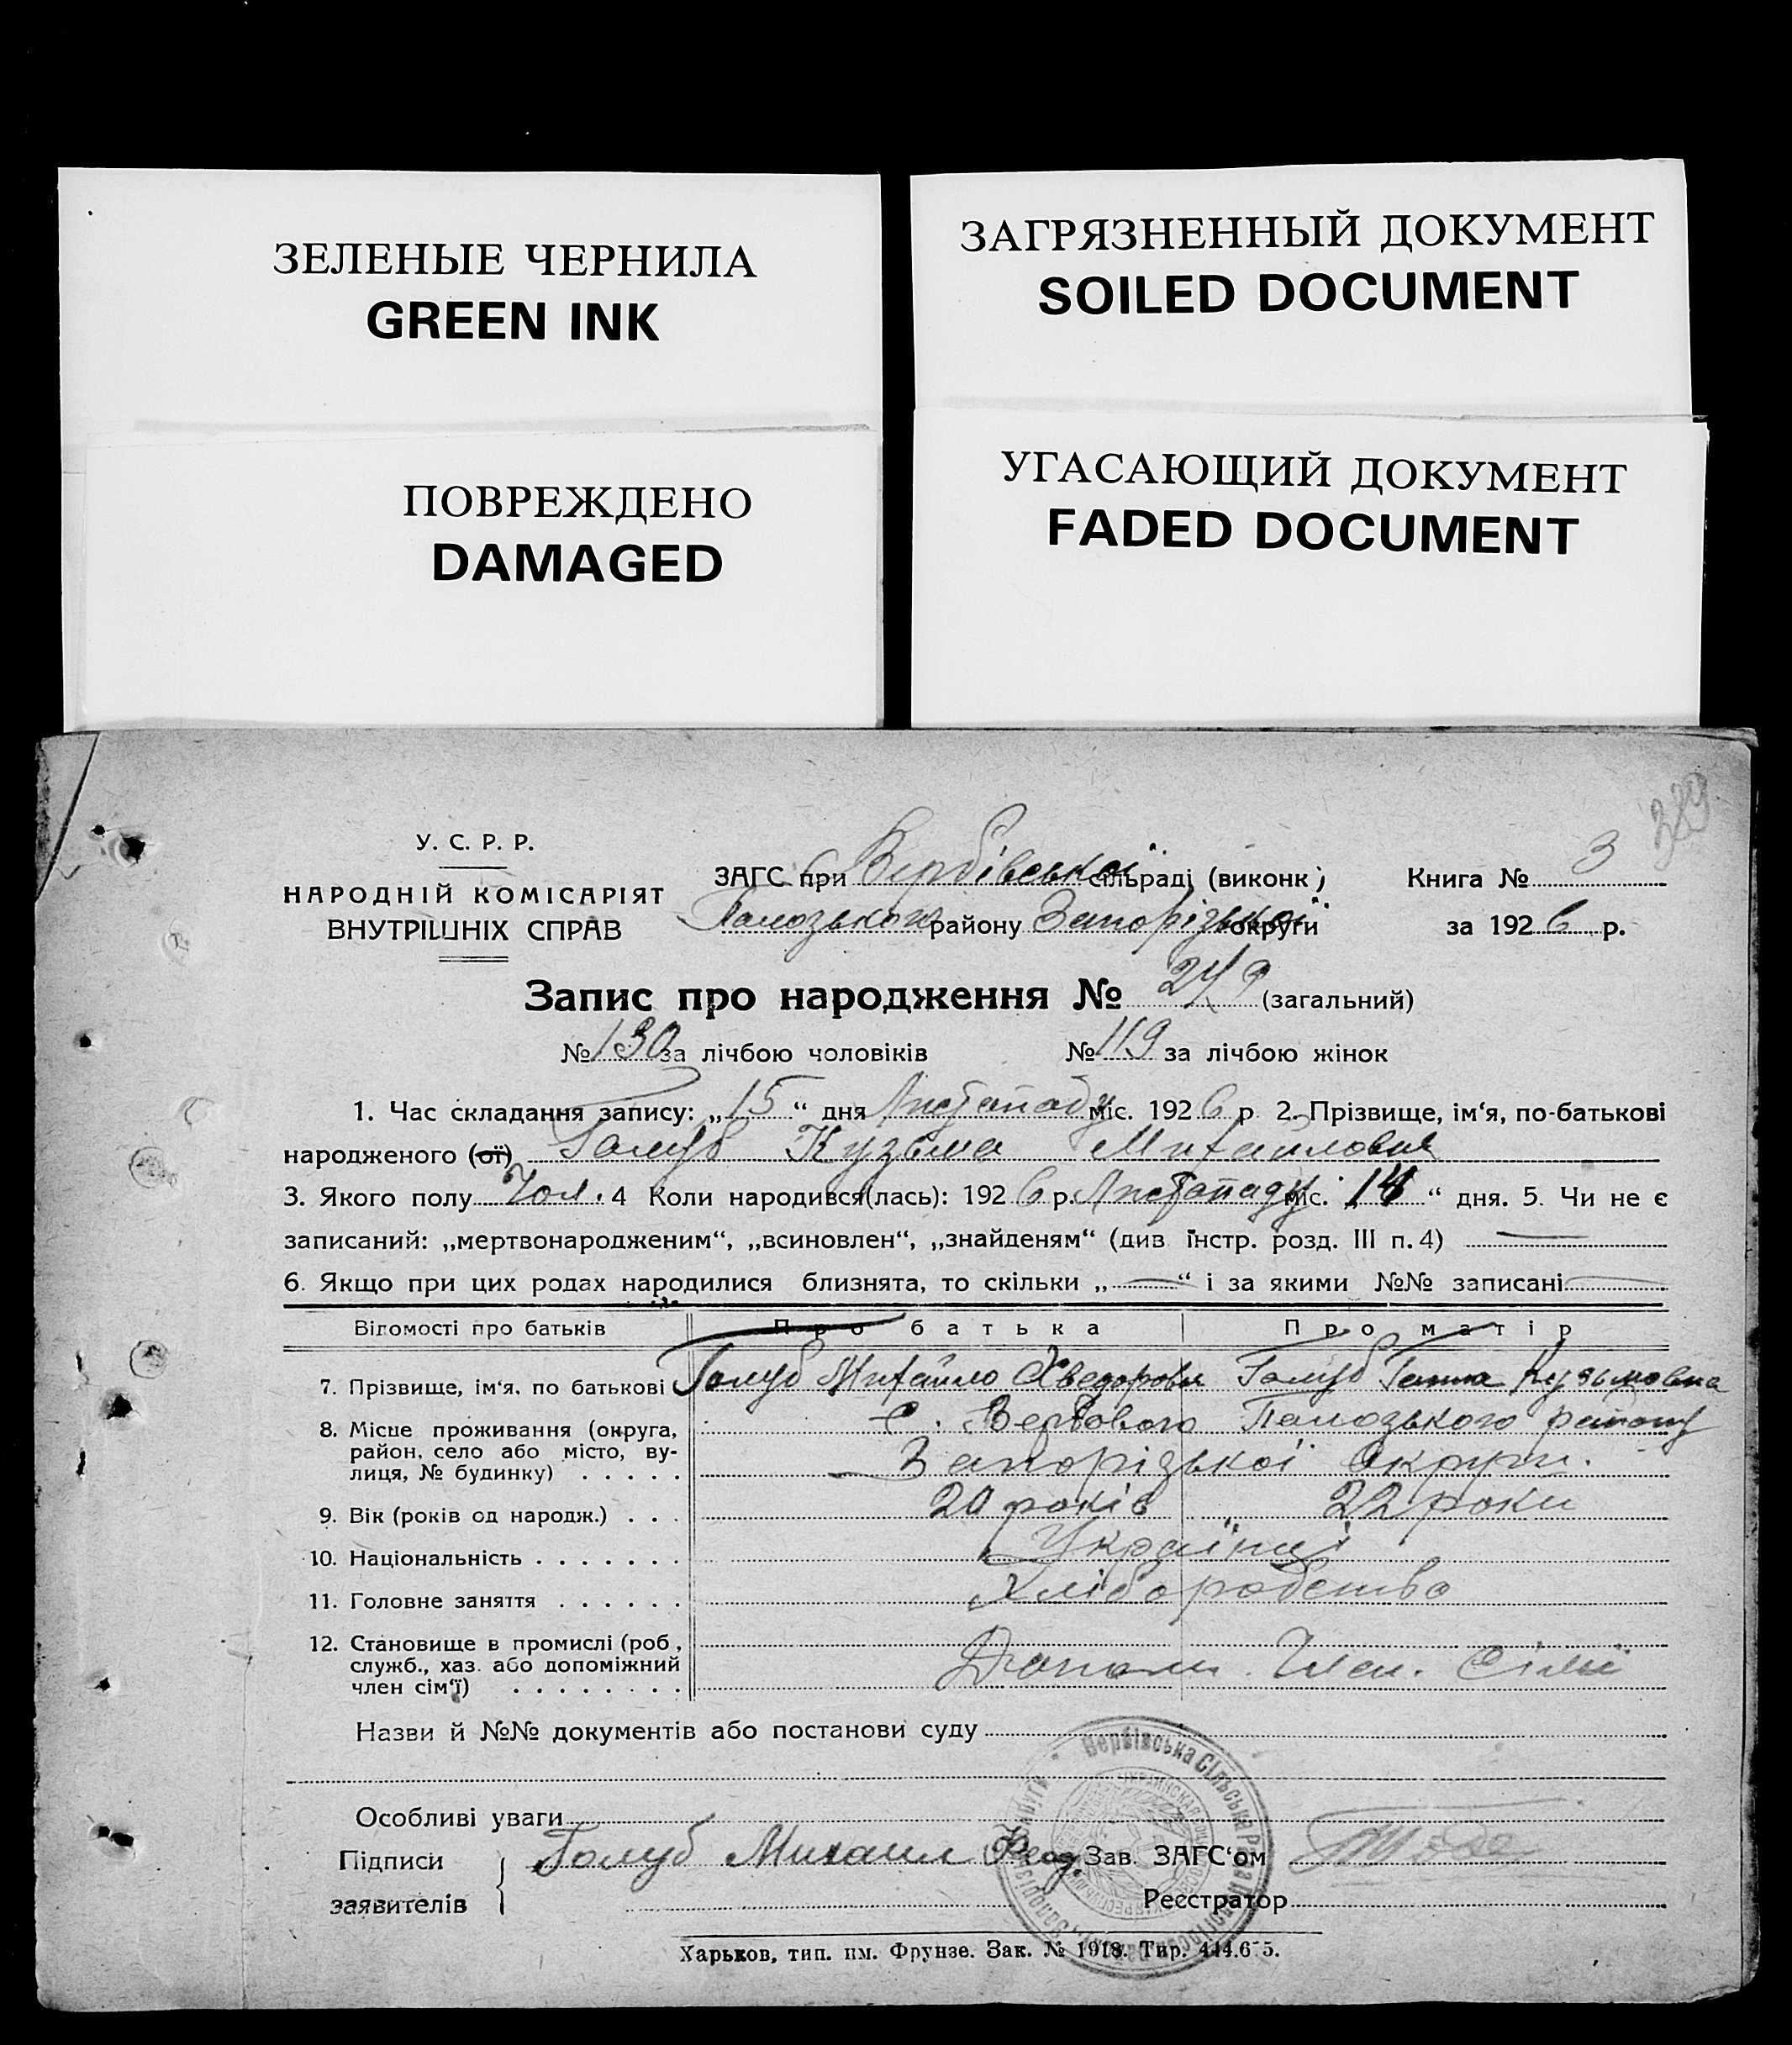 ЗЕЛЕНЫЕ ЧЕРНИЛА
GREEN INK
ЗАГРЯЗНЕННЫЙ ДОКУМЕНТ
SOILED DOCUMENT
ПОВРЕЖДЕНО
DAMAGED
УГАСАЮЩИЙ ДОКУМЕНТ
FADED DOCUMENT
389
У. С. Р. Р.
НАРОДНІЙ КОМІСАРІЯТ
ВНУТРІШНІХ СПРАВ
ЗАГС при Вербівської сільраді (виконк.)
району Запорізької округи
Книга № 3
за 1926 р.
Запис про народження № 249 (загальний)
№ 130 за лічбою чоловіків № 119 за лічбою жінок
1. Час складання запису: „15“ дня Листопаду міс. 1926 р 2. Прізвище, ім‘я, по-батькові
народженого (ої) Голуб Кузьма Михайлович
3. Якого полу Чол. 4 Коли народився(лась): 1926 р. Листопаду міс. „14“ дня. 5. Чи не є
записаний: „мертвонародженим“, „всиновлен“, „знайденям“ (див інстр. розд. III п. 4) —
6. Якщо при цих родах народилися близнята, то скільки „—“ і за якими №№ записані —
Відомості про батьків Про батька Про матір
7. Прізвище, ім‘я. по батькові Голуб Михайло Хведорови Голуб Ганна Кузьмовна
8. Місце проживання (округа, с. Вербового Пологського району
район, село або місто, ву-
лиця, № будинку) . . . . . Запорізької Округи.
9. Вік (років од народж.) . . . 20 років 22 роки
10. Національність . . . . . . . Українці
11. Головне заняття . . . . . . Хліборобство
12. Становище в промислі (роб.,
служб., хаз. або допоміжний Допом. Член. Сімї
член сім‘ї) . . . . . . . .
Назви й №№ документів або постанови суду
Вербівська Сільська Рада
Особливі уваги
Підписи Голуб Михаил Феод. Зав. ЗАГС‘ом
заявителів Реєстратор
Харьков, тип. им. Фрунзе. Зак. № 1918. Тир. 414.675.